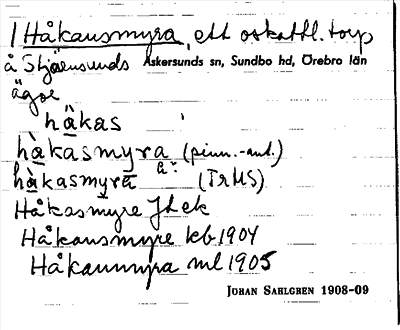 1 Håkansmyra, ett oskattl. torp
å Stjärnsunds Askersunds sn, Sundbo hd, Örebro län
ägor
håkas
håkasmyra (pinn.-ant.)
håkasmyra (TrMS)
Håkasmyre JLek
Håkansmyre kb 1904
Håkanmyra ml 1905
JOHAN SAHLGREN 1908-09